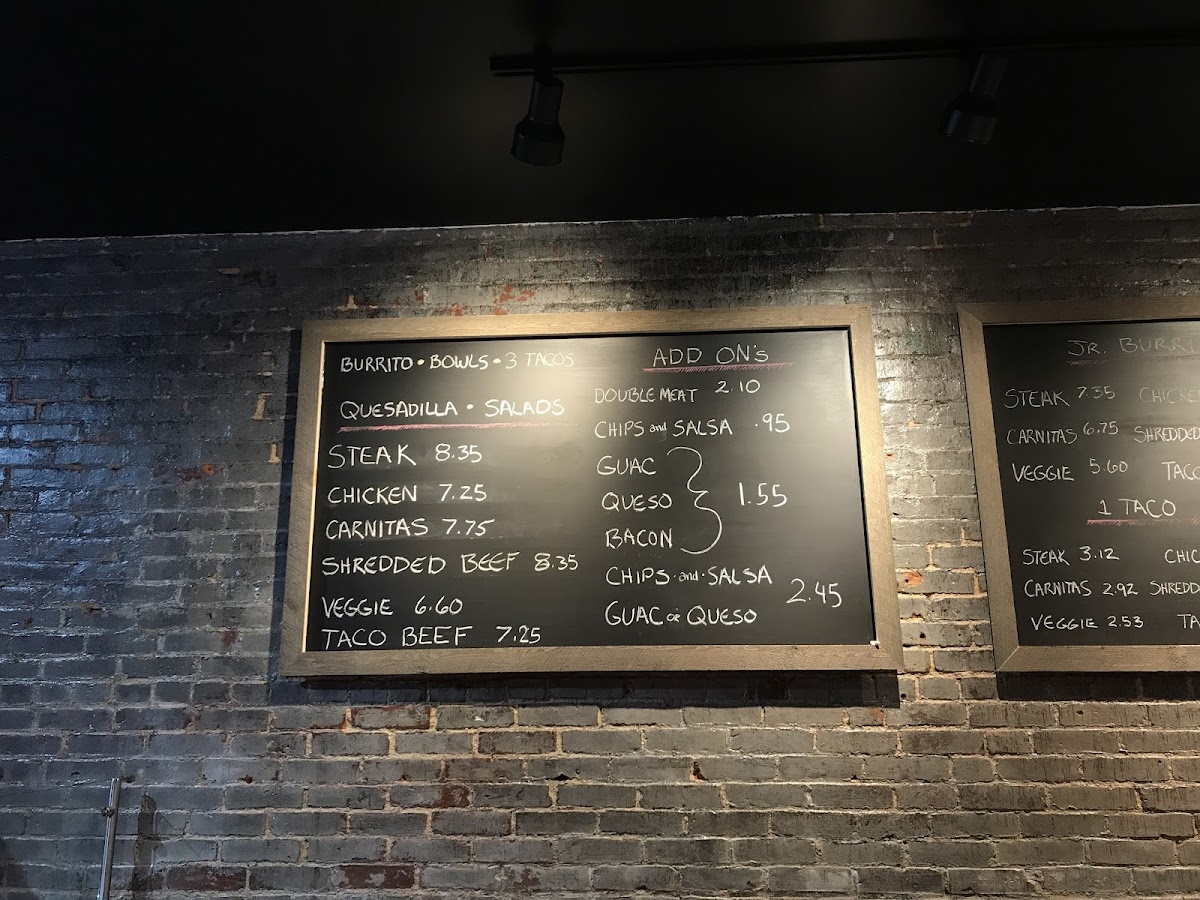 BURRITO • BOWLS • 3 TACOS
QUESADILLA • SALADS
STEAK 8.35
CHICKEN 7.25
CARNITAS 7.75
SHREDDED BEEF 8.35
VEGGIE 6.60
TACO BEEF 7.25
ADD ON'S
DOUBLE MEAT 2.10
CHIPS and SALSA .95
GUAC
QUESO 1.55
BACON
CHIPS and SALSA 2.45
GUAC or QUESO
JR. BURRI
STEAK 7.35 CHICKE
CARNITAS 6.75 SHREDDED
VEGGIE 5.60 TACO
1 TACO
STEAK 3.12 CHIC
CARNITAS 2.92 SHREDD
VEGGIE 2.53 TA